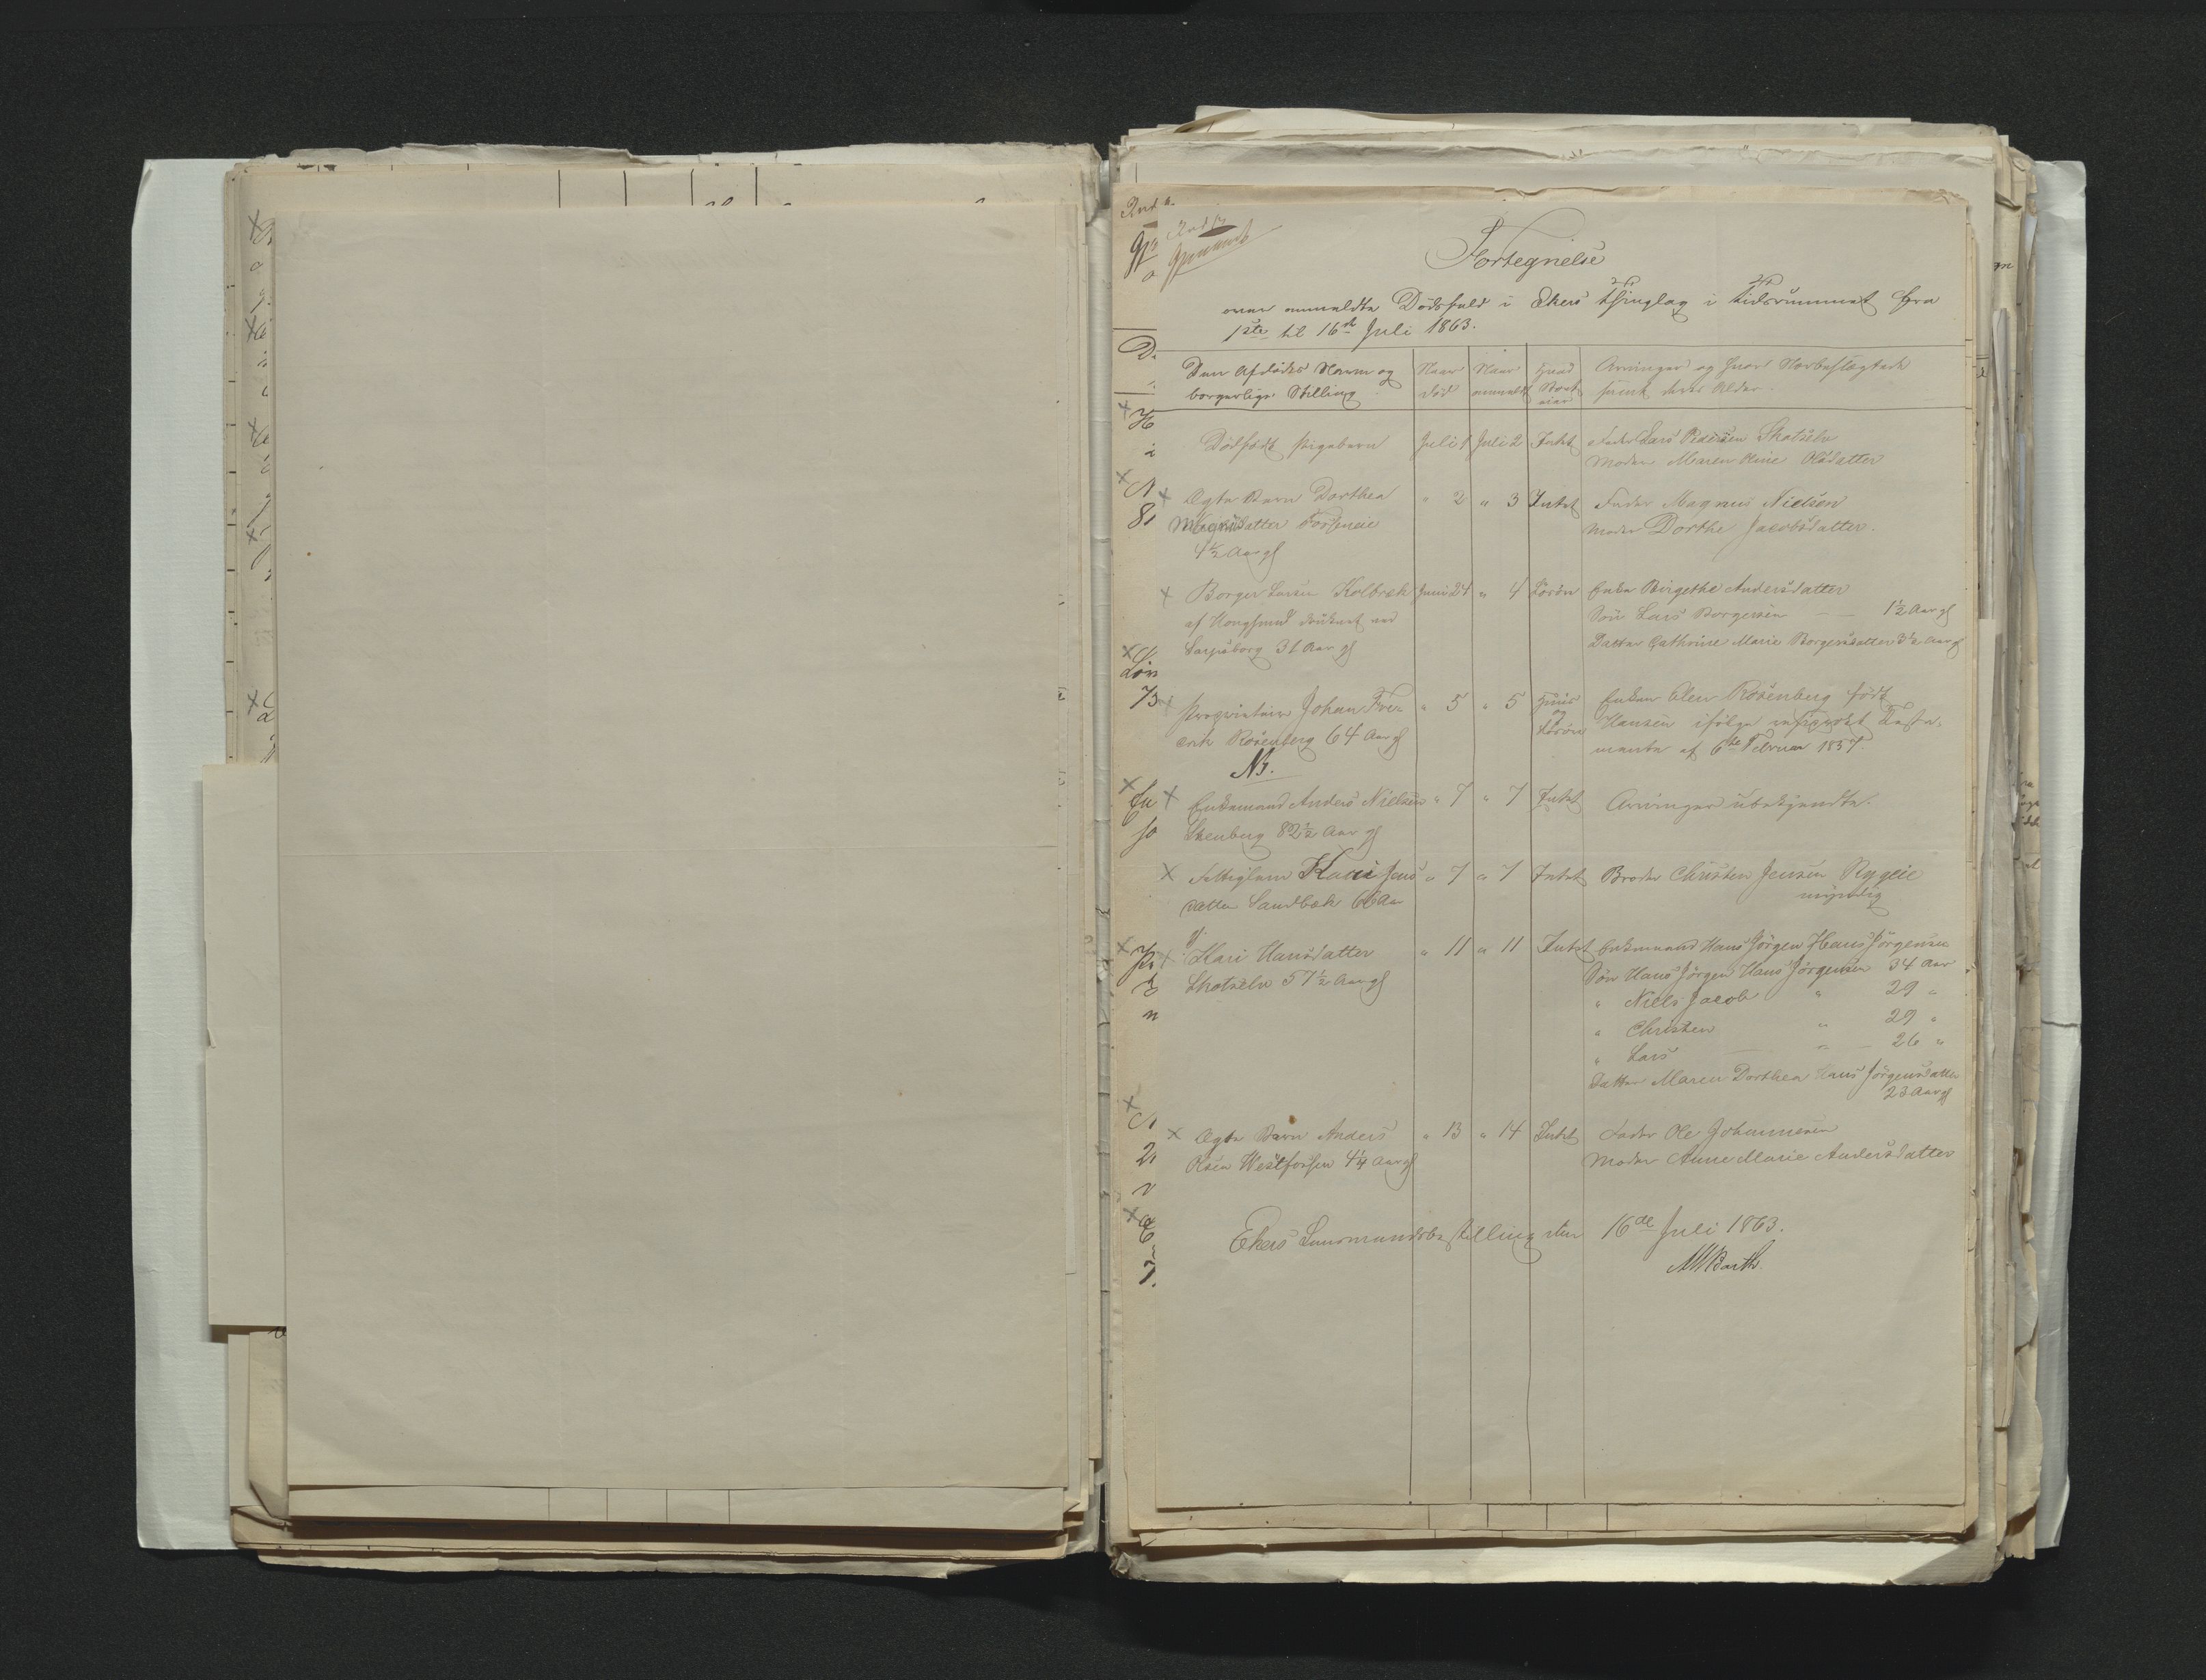 Fortegnelse
over anmeldte Dødsfald i Ekers Thinglag i Tidsrummet fra
1ste til 16de Juli 1863.
Den Afdødes Navn og borgerlige Stilling
Naar død
Naar anmeldt
Arvinger og hvor Nærbeslægtede samt deres Alder
Dødfødt Pigebarn Juli 1 Juli 2 Intet Fader Lars Pedersen Skotselv
Moder Maren Oline Olsdatter
Ægte Barn Dorthea " 2 " 3 Intet Fader Magnus Nielsen
Magnusdatter Fossneie Moder Dorthe Jacobsdatter.
4½ Aar gl
Borger Larsen Kolbræk Juni 24 " 4 Løsøre Enke Birgethe Andersdatter
af Hougsund druknet ved Søn Lars Borgersen 1½ Aar gl
Sarpsborg 31 Aar gl Datter Cathrine Marie Borgersdatter 3½ Aar gl
Proprietair Johan Fre- " 5 " 5 Huus og Løsøre Enken Olea Rosenberg født
erik Rosenberg 64 Aar gl Hansen ifølge Testa-
mente af 6te Februar 1857.
NB.
Enkemand Anders Nielsen " 7 " 7 Intet Arvinger ubekjendte.
Stenberg 82½ Aar gl
Fattiglem Kari Jens " 7 " 7 Intet Broder Christen Jensen Rygeie
datter Sandbæk 66 Aar myndig
gl.
Kari Hansdatter " 11 " 11 Intet Enkemand Hans Jørgen Hans Jørgensen
Skotselv 57½ Aar gl Søn Hans Jørgen Hans Jørgensen 34 Aar
" Niels Jacob " 29 "
" Christen " 29 "
" Lars " 26 "
Datter Maren Dorthea Hans Jørgensdatter
23 Aar gl
Ægte Barn Anders " 13 " 14 Intet Fader Ole Johannesen
Olsen Westfossen 4¼ Aar gl Moder Anne Marie Andersdatter
Ekers Lensmandsbestilling den 16de Juli 1863.